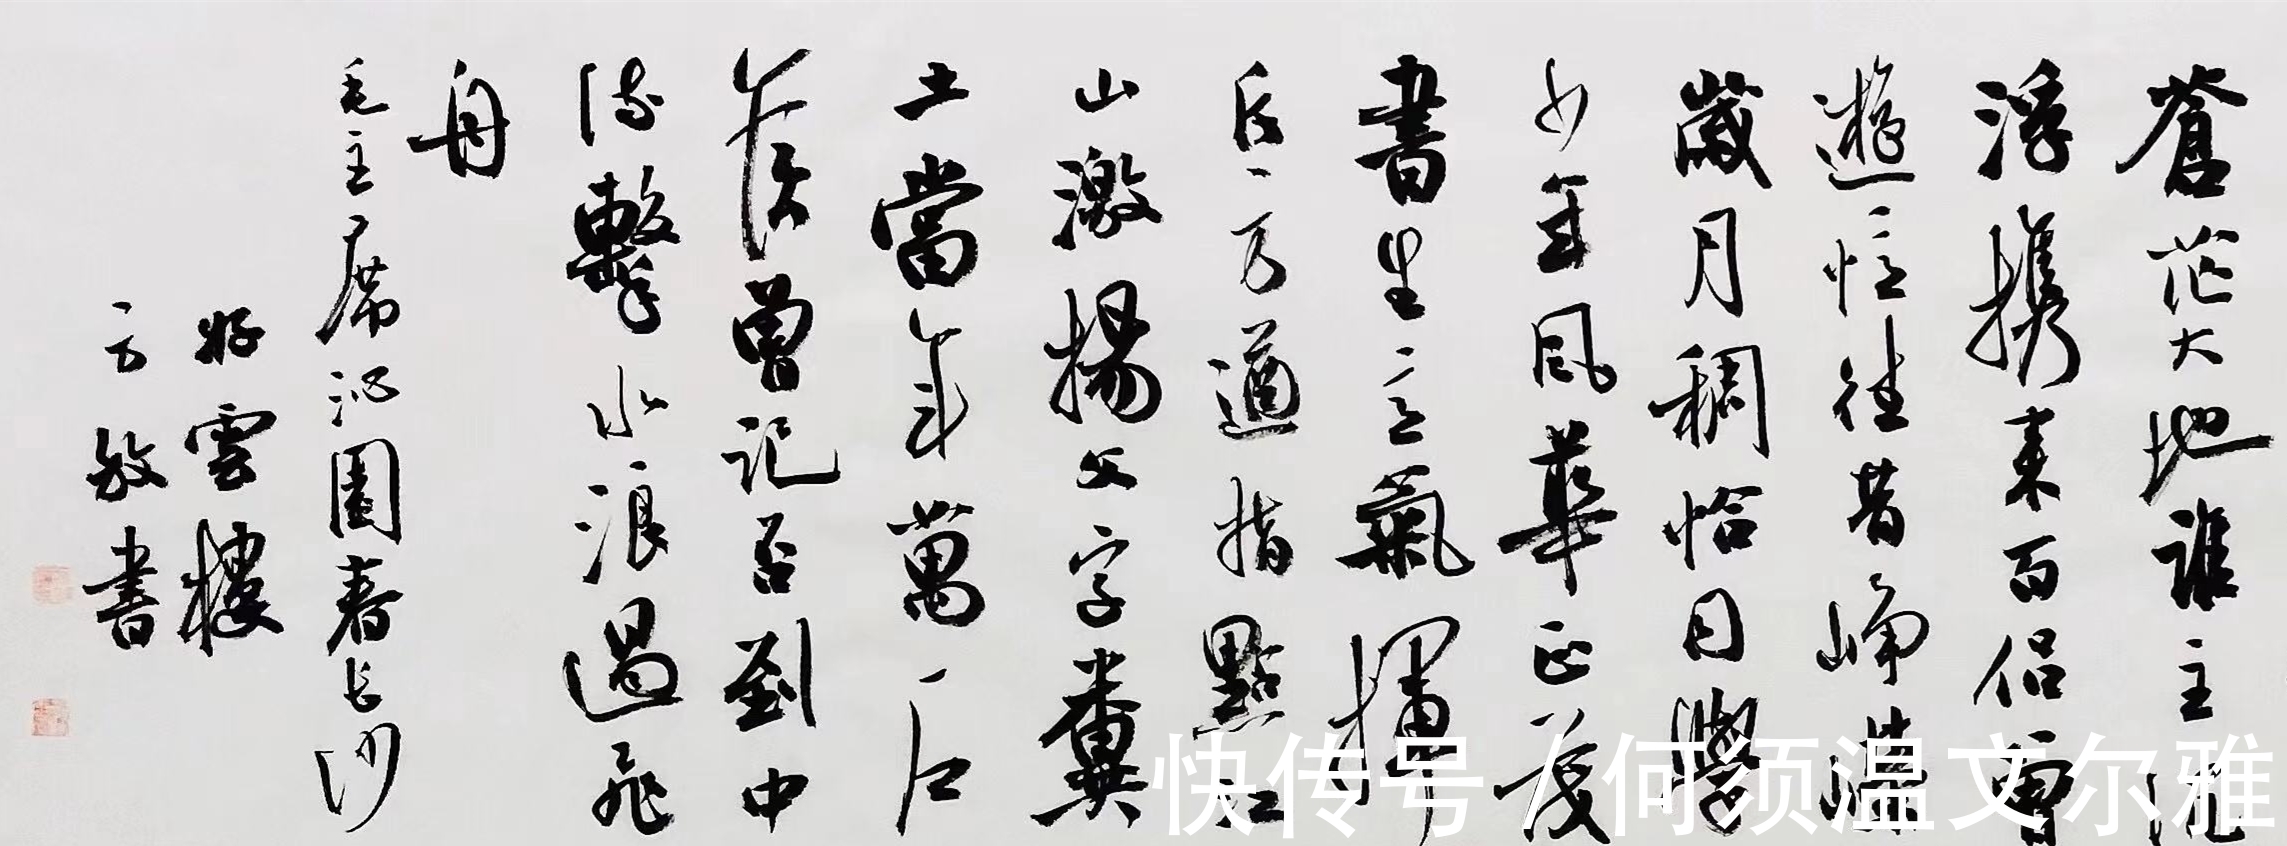 蒼茫大地誰主沉
浮攜來百侶曾
遊憶往昔崢嶸
歲月稠恰同學
少年風華正茂
書生意氣揮
斥方遒指點江
山激揚文字糞
土當年萬戶
侯曾記否到中
流擊水浪遏飛
舟
毛主席沁園春長沙
好雲樓
方敏書
快传号 / 何须温文尔雅